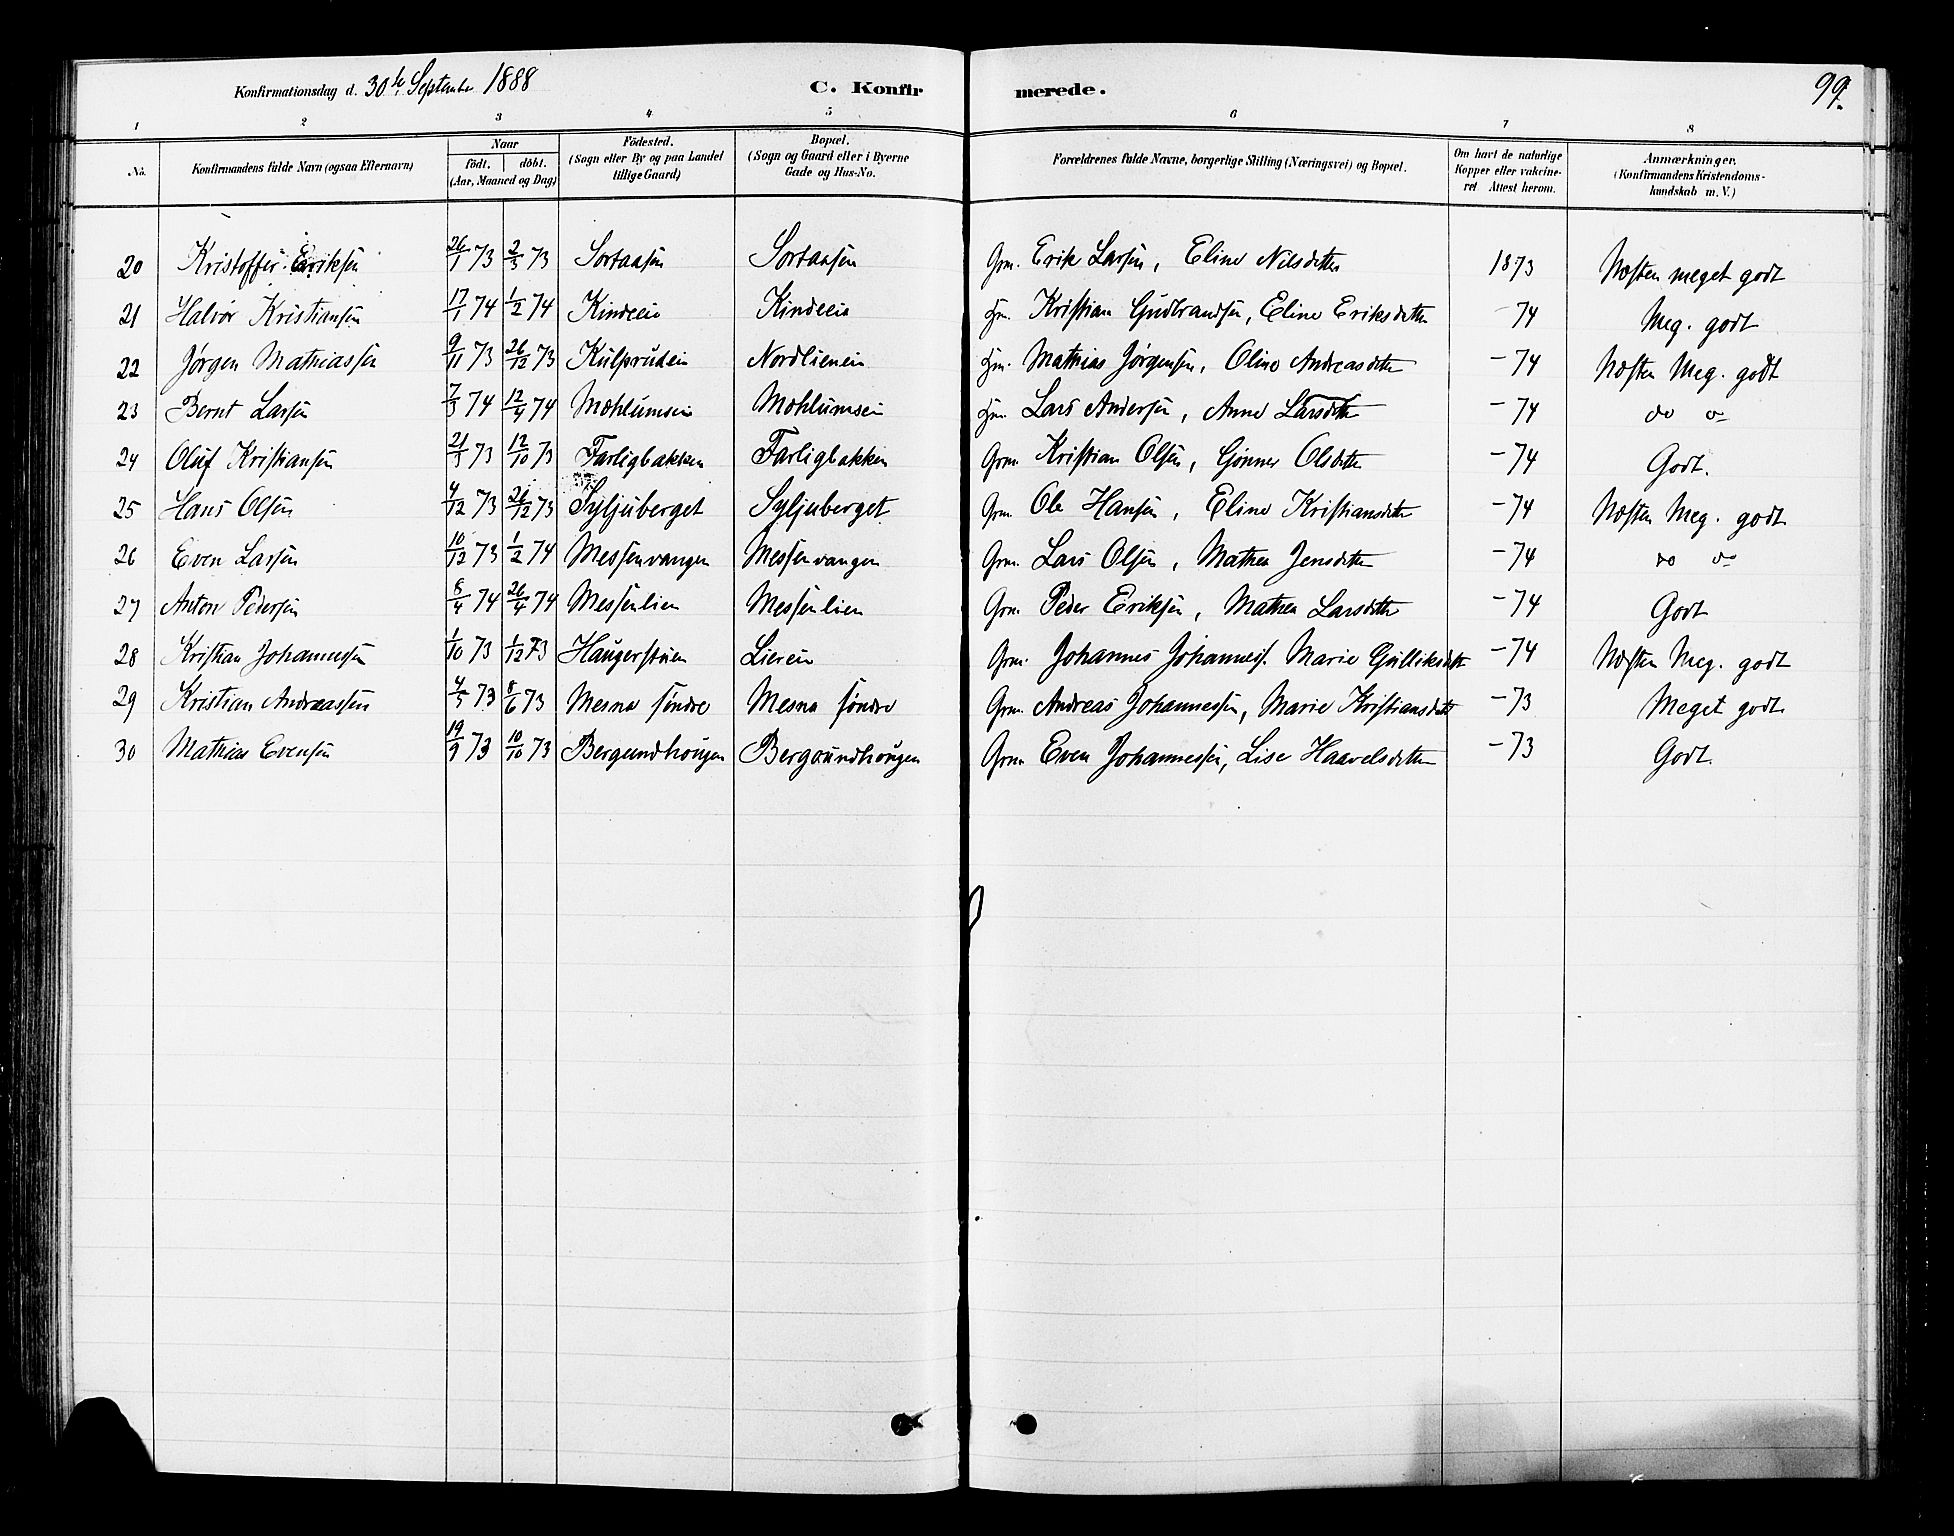 Konfirmationsdag d. 30te September 1888 C. Konfirmerede. 99.
1 2 3 4 5 6 7 8
No. Konfirmandens fulde Navn (ogsaa Efternavn) Naar födt. döbt. (Aar, Maaned og Dag) Födested. (Sogn eller By og paa Landet tillige Gaard) Bopæl. (Sogn og Gaard eller i Byerne Gade og Hus-No. Forældrenes fulde Navne, borgerlige Stilling (Næringsvei) og Bopæl. Om havt de naturlige Kopper eller vakcineret. Attest herom. Anmærkninger. (Konfirmandens Kristendomskundskab m. V.)
20 Kristoffer Eriksen 26/1 73 2/3 73 Sortaasen Sortaasen Grm. Erik Larsen, Eline Nilsdatter 1873 Næsten meget godt
21 Halvor Kristiansen 17/1 74 1/2 74 Kindeeie Kindeeie Hm. Kristian Gudbrandsen, Eline Eriksdatter - 74 Meg. godt
22 Jørgen Mathiassen 9/11 73 26/12 73 Kulsrudeie Nordlieneie Hm. Mathias Jørgensen, Oline Andreasdatter - 74 Næsten Meg. godt
23 Bernt Larsen 7/3 74 12/4 74 Mæhlumseie Mæhlumseie Hm. Lars Andersen, Anne Larsdatter - 74 do o
24 Oluf Kristiansen 21/3 73 12/10 73 Farligbakken Farligbakken Grm. Kristian Olsen, Gønner Olsdatter - 74 Godt.
25 Hans Olsen 4/12 73 26/12 73 Syljuberget Syljuberget Grm. Ole Hansen, Eline Kristiansdatter - 74 Næsten Meg. godt
26 Even Larsen 10/12 73 1/2 74 Messenvangen Messenvangen Grm. Lars Olsen, Mathea Jensdatter - 74 do o
27 Anton Pedersen 8/4 74 26/4 74 Messenlien Messenlien Grm. Peder Eriksen, Mathea Larsdatter - 74 Godt
28 Kristian Johannessen 1/10 73 1/12 73 Haugerstuen Liereie Grm. Johannes Johanness. Marie Gulliksdatter - 74 Næsten Meg. godt
29 Kristian Andreassen 4/5 73 8/6 73 Mesna søndre Mesna søndre Grm. Andreas Johannessen, Marie Kristiansdatt - 73 Meget godt
30 Mathias Evensen 19/9 73 10/10 73 Bergundhougen Bergsundhougen Grm Even Johannessen, Lise Haavelsdatter - 73 Godt.